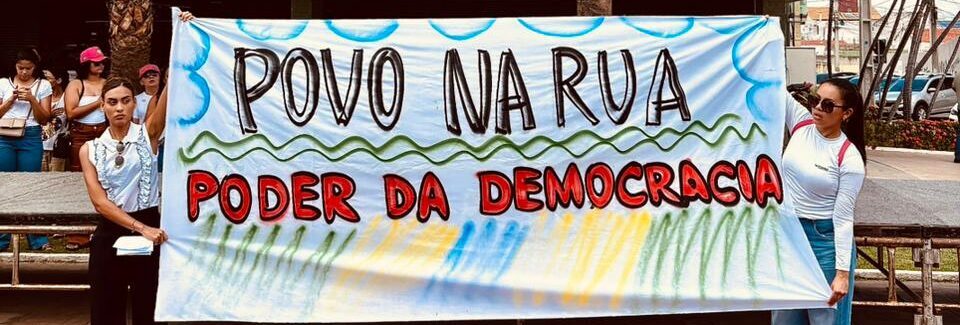 POVO NA RUA
PODER DA DEMOCRACIA